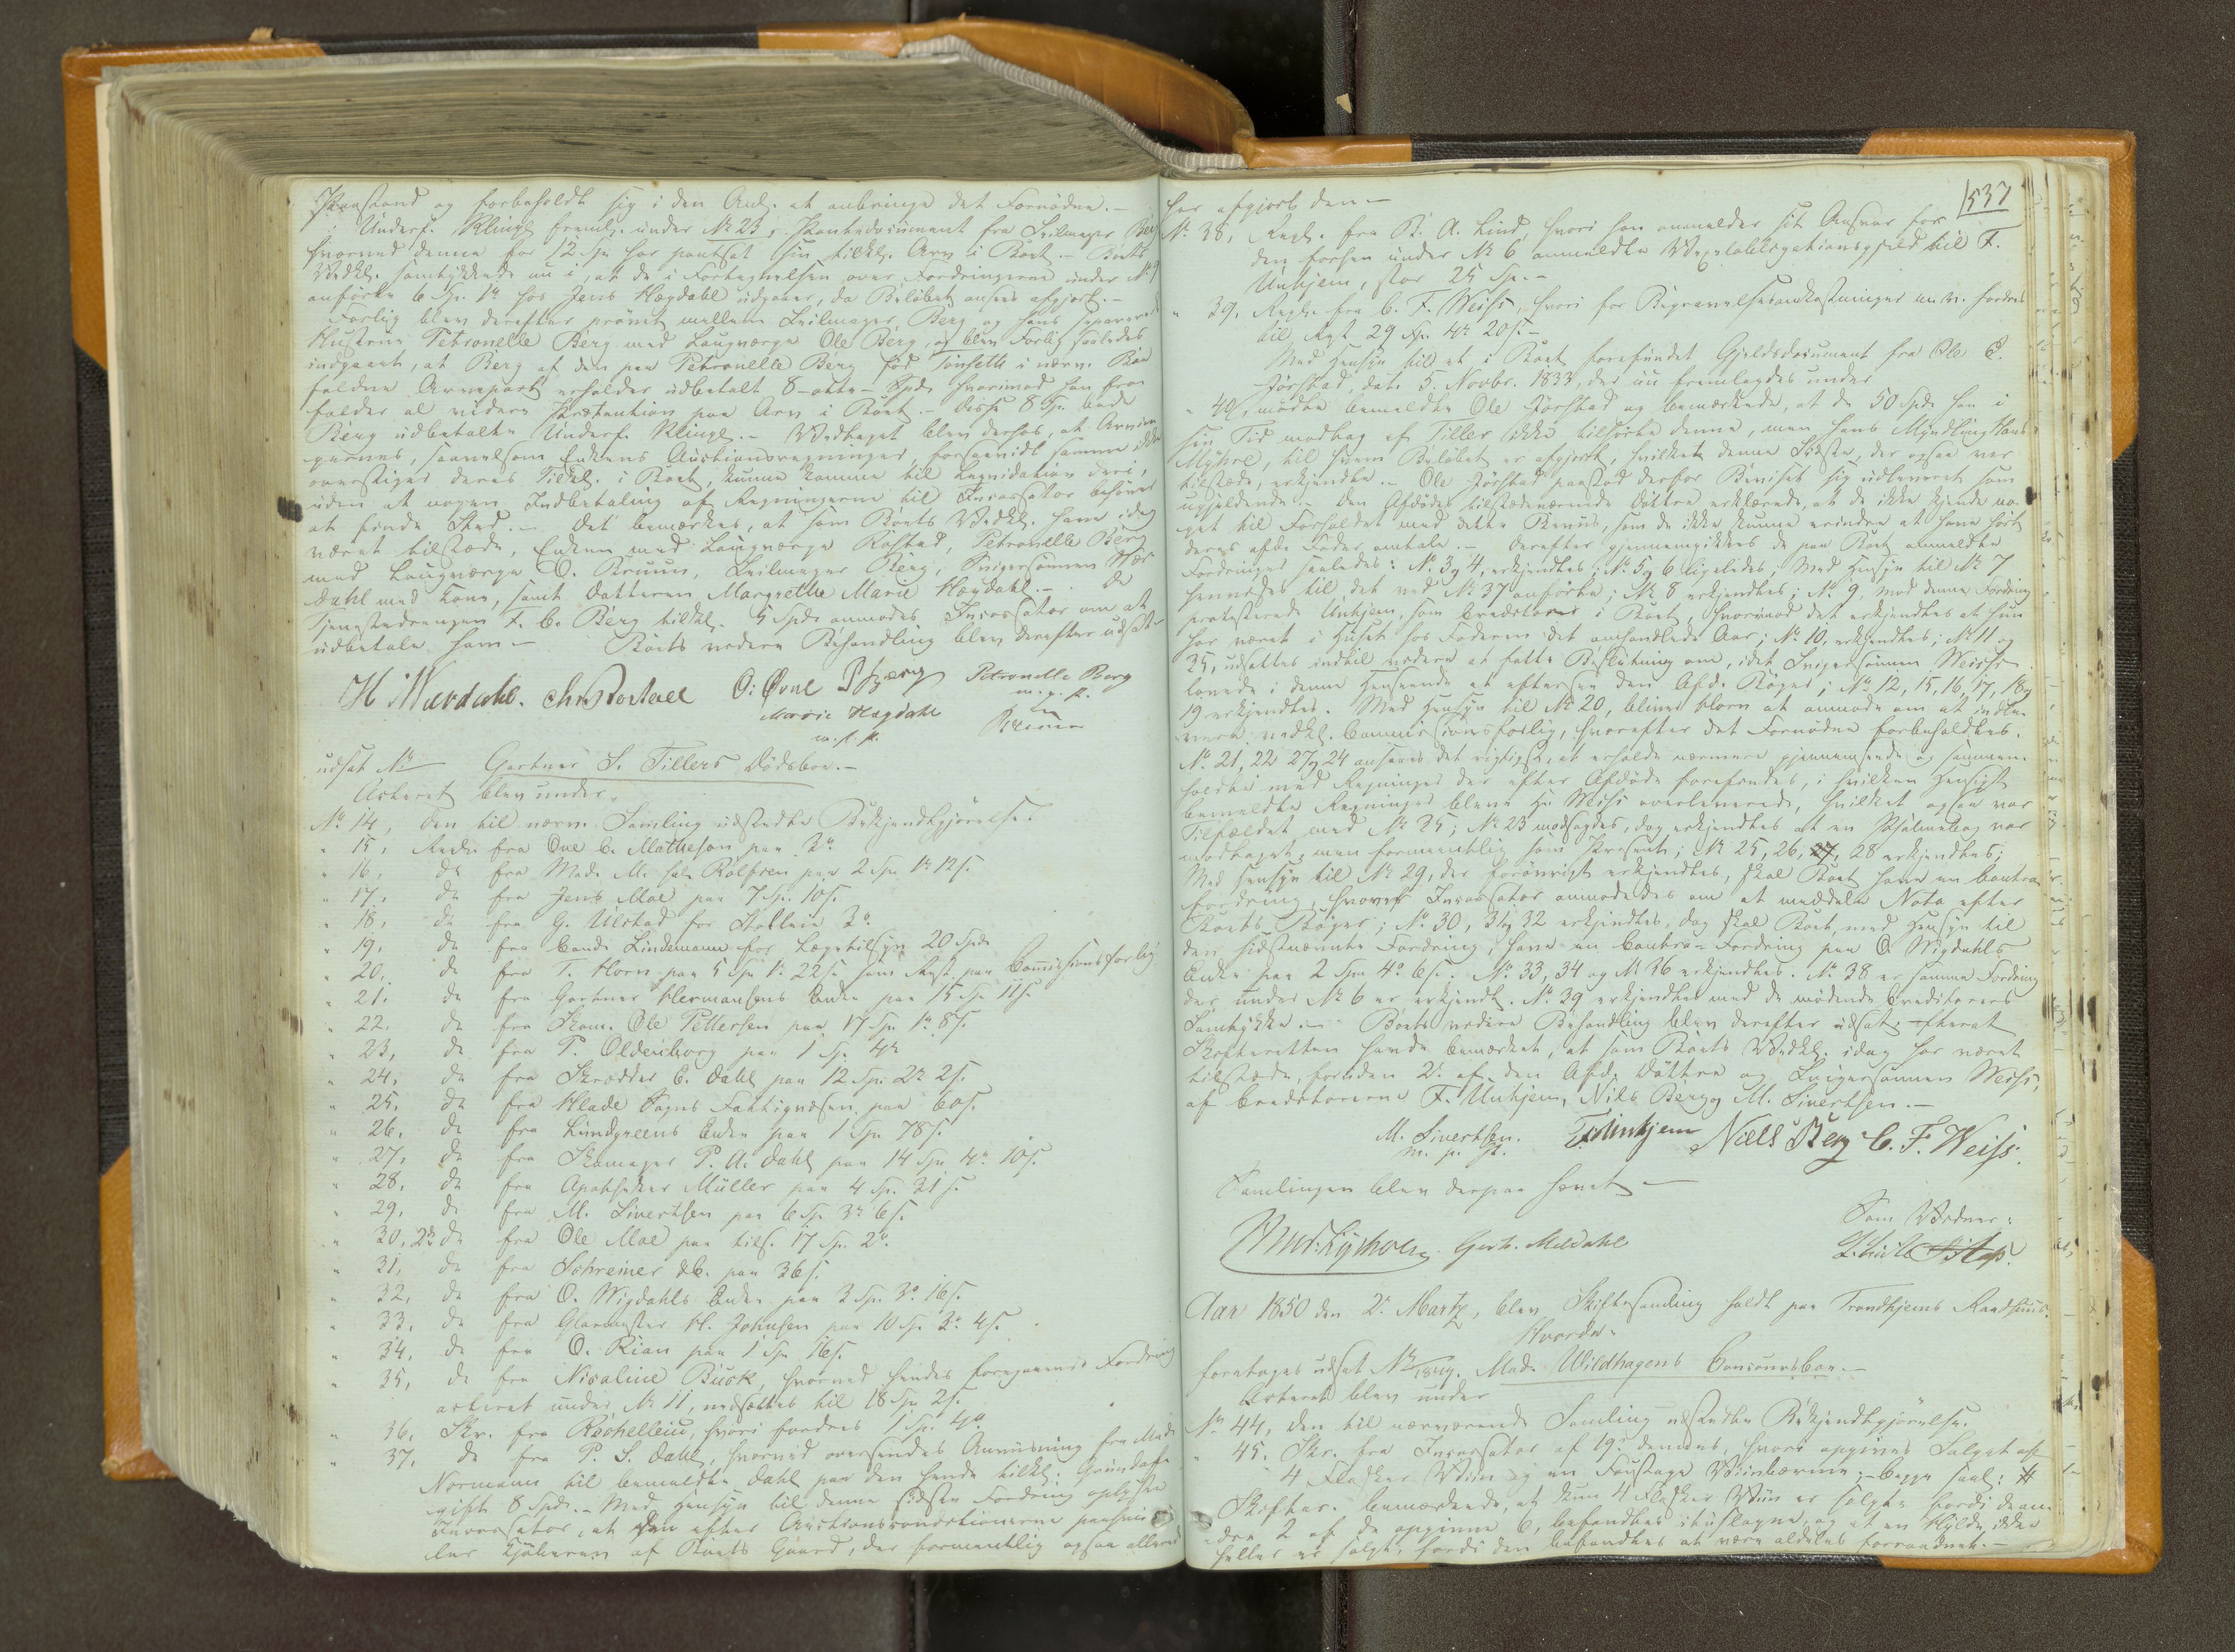 Paastand og forbeholdt sig i den Anl. at anbringe det Fornødne.-
Underf. Klingl freml. under No 23, Skadesdocument fra Seilmager Berg
hvorved denne for 12 Spd har pantsat sin tilkl. Arv i Boet.- Boets
Vedkl. samtykkede nu i, at de i Fortegnelsen over Fordringerne under No 9
anførte 6 Spd. 1 hos Jens Hægdahl udgaaer, da Beløbet ansees afgjort.-
Forlig blev derefter prøvet mellem Seilmager Berg og hans separerede
Hustrue Petronelle Berg med Laugværge Ole Berg, og blev Forlig saaledes
indgaaet, at Berg af den paa Petronelle Berg født Tønseth i nærv. Boe
faldne Arvepart erholder udbetalt 8 - otte - Spd. hvorimod han fra-
falder al videre Prætention paa Arv i Boet.- Disse 8 Spd. bad
Berg udbetalte Underf. Klingl.- Vedtaget blev derhos, at Arvin-
gernes, saavelsom Enkens Auctionsregninger, forsaavidt samme ikke
overstiger deres Tilkl. i Boet, kunne komme til Liquidation deri,
uden at nogen Indbetaling af Regningerne til Incassator behøver
at finde Sted.- Det bemærkes, at som Boets Vedkl. have idag
været tilstæde, Enken med Laugværge Rostad, Petronelle Berg
med Laugværge O. Bruun, Seilmager Berg, Svigersønnen Wær-
dahl med Kone, samt Datteren Margrethe Marie Hægdahl.- De
Tjenestedrengen F. C. Berg tilkl. 5 Spd. anmodes Incassator om at
udbetale ham.- Boets videre Behandling blev derefter udsat.
H Wærdahl. Chr Rostad O: Øvre P Berg Petronelle Berg
m. p. p.
Marie Hægdahl
m. p. p. Bruun
udsat No Gartner S. Tillers Dødsboe.-
Acteret blev under.
No 14, den til nærv. Samling udstedte Bekjendtgjørelse.
" 15, Regn. fra Ove C. Matheson paa 3
" 16, do fra Mad. M. sal. Rolfsen paa 2 Spd 1 12 s.
" 17, do fra Jens Moe paa 7 Sp. 10 s.
" 18, do fra G. Ulstad for Stolleie 3
" 19, do fra Cand. Lindemann for Lægetilsyn 20 Spd.
" 20, do fra T. Horn paa 5 Spd 1 22 s. som Rest paa Commissionsforlig.
" 21, do fra Gartner Hermansens Enke paa 15 Spd 11 s.
" 22, do fra Skom. Ole Pettersen paa 17 Spd 1 8 s.
" 23, do fra P. Oldenborg paa 1 Sp. 4
" 24, do fra Skrædder C. Dahl paa 12 Spd 2 2 s.
" 25, do fra Hlade Sogns Fattigvæsen paa 60 s.
" 26, do fra Lundgreens Enke paa 1 Spd 78 s.
" 27, do fra Skomager P. A. Dahl paa 14 Spd. 4 10 s.
" 28, do fra Apotheker Müller paa 4 Sp. 31 s.
" 29, do fra M. Sivertsen paa 6 Sp. 3 6 s.
" 30, 2de do fra Ole Moe paa tils. 17 Sp. 2
" 31, do fra Schreiner & C. paa 36 s.
" 32, do fra O. Wigdahls Enke paa 3 Spd 3 16 s.
" 33, do fra Glarmester H. Johnsen paa 10 Sp 3 4 s.
" 34, do fra O. Rian paa 1 Spd 16 s.
" 35, do fra Nicoline Buck, hvorved hendes foregaaende Fordring
acteret under No 11, nedsættes til 18 Sp 2 s.
" 36, Skr. fra Rochelleiu, hvori fordres 1 Sp. 4
" 37, do fra P. S. Dahl, hvorved oversendes Anviisning fra Mad.
Normann til bemeldte Dahl paa den hende tilkl. Grundaf-
gift 8 Spd.- Med Hensyn til denne sidste Fordring oplyste
Incassator, at den efter Auctionsconditionerne paahvi-
ler Kjøberen af Boets Gaard, der formeentlig ogsaa allerede
537
har afgjort den.-
No 38, Regn. fra B. A. Lind, hvori han anmelder sit Ansvar for
den forhen under No 6 anmeldte Vexelobligationsgjeld til F.
Unkjem, stor 25 Sp.-
" 39, Regn. fra C. F. Weiss, hvori for Begravelsesomkostninger m. v. fordres
til Rest 29 Sp. 4 20 s.-
Med Hensyn til et i Boet forefundet Gjeldsdocument fra Ole E.
Jørstad, dat. 5. Novbr. 1833, der nu fremlagdes under
" 40, mødte bemeldte Ole Jørstad og bemærkede, at de 50 Spd. han i
sin Tid modtog af Tiller ikke tilhørte denne, men hans Myndling Hans
Myhre, til hvem Beløbet er afgjort, hvilket denne Sidste, der ogsaa var
tilstæde, erkjendte.- Ole Jørstad paastod derfor Beviset sig udleveret som
ugjeldende.- Den Afdødes tilstædeværende Døttre erklærede, at de ikke kjende no-
get til Forholdet med dette Beviis, som de ikke kunne erindre at have hørt
deres afde. Fader omtale.- Derefter gjennemgikkes de paa Boet anmeldte
Fordringer saaledes: No 3 og 4, erkjendtes; No 5 og 6 ligeledes; Med Hensyn til No 7
henvistes til det ved No 37 anførte; No 8 erkjendtes; No 9, mod denne Fordring
protesterede Unkjem, som Creditor i Boet, hvorimod det erkjendtes at hun
har været i Huset hos Faderen det omhandlede Aar; No 10, erkjendtes; No 11 og
35, udsættes indtil videre at fatte Beslutning om, idet Svigersønnen Weiss
lovede i denne Henseende at eftersee den Afd. Bøger; No 12, 15, 16, 17, 18 og
19 erkjendtes. Med Hensyn til No 20, bliver Horn at anmode om at indle-
vere vedkl. Commissionsforlig, hvorefter det Fornødne forbeholdtes.
No 21, 22 27 og 24 ansaaes det rigtigst, at erholde nærmere gjennemseede og sammen-
holdte med Regninger der efter Afdøde forefindes, i hvilken Hensigt
bemeldte Regninger bleve Hr. Weiss overleverede, hvilket ogsaa var
Tilfældet med No 25; No 23 modsagdes, dog erkjendtes at en Psalmebog var
modtaget, men formeentlig som Present; No 25, 26, 27, 28 erkjendtes;
Med Hensyn til No 29, der forøvrigt erkjendtes, skal Boet have en Contra-
fordring, hvorover Incassator anmodedes om at meddele Nota efter
Boets Bøger; No 30, 31 og 32 erkjendtes, dog skal Boet, med Hensyn til
den sidstnævnte Fordring, have en Contra-Fordring paa O. Wigdahls
Enke paa 2 Spd 4 6 s. No 33, 34 og No 36 erkjendtes. No 38 er samme Fordring
der under No 6 er erkjendt. No 39 erkjendtes med de mødende Creditorers
Samtykke.- Boets videre Behandling blev derefter udsat, efterat
Skifteretten havde bemærket, at som Boets Vedkl. idag har været
tilstæde, foruden 2 af den Afd. Døttre og Svigersønnen Weiss,
af Creditorerne F. Unkjem, Nils Berg og M. Sivertsen.-
M. Sivertsen. F Unkjem Niels Berg C. F. Weiss.
m. p. p.
Samlingen blev derpaa hævet.-
Som Vidner:
Knud Lysholm Gerh. Meldahl
Aar 1850 den 2 Martz, blev Skiftesamling holdt paa Trondhjems Raadhuus.
Hvorda
foretages udsat No /1849. Mad. Wildhagens Concursboe.-
Acteret blev under
No 44, den til nærværende Samling udstedte Bekjendtgjørelse.
" 45, Skr. fra Incassator af 19 dennes, hvori opgives Salget af
4 Flasker Viin og en Foustage Viinbærme;- Begge saal: #
Skifter. bemærkede, at kun 4 Flasker Viin er solgt, fordi de an-
dre 2 af de opgivne 6, befandtes ituslagne, og at en Hylde ikke
heller er solgt, fordi den befandtes at være aldeles forraadnet.-